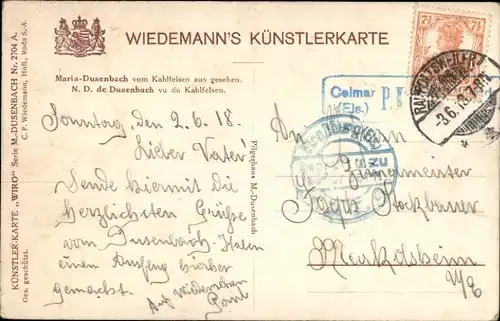 WIEDEMANN'S KÜNSTLERKARTE
Maria-Dusenbach vom Kahlfelsen aus gesehen.
N. D. de Dusenbach vu du Kahlfelsen.
KÜNSTLER-KARTE „WIRO“ Serie M.-DUSENBACH Nr. 2704 A.
Ges. geschützt. C. P. Wiedemann, Hofl., Roda S.-A.
Pilgerhaus M.-Dusenbach
7½
RAPPOLTSWEILER
-3.6.18.7-8
Colmar P.K.
(Els.)
Sonntag, den 2.6.18.
Lieber Vater!
Sende hiermit die
herzlichsten Grüße
vom Dusenbach. Haben
einen Ausflug hierher
gemacht. Auf Wiedersehen
An
Herrn
Markolsheim